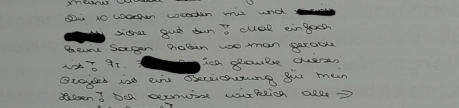 meine
Die 10 Wochen werden mir und
sicher gut tun! Mal einfach
keine Sorgen haben wo man gerade
ist! ich glaube dieses
Projekt ist eine Bereicherung für mein
Leben! Ich vermisse wirklich alle